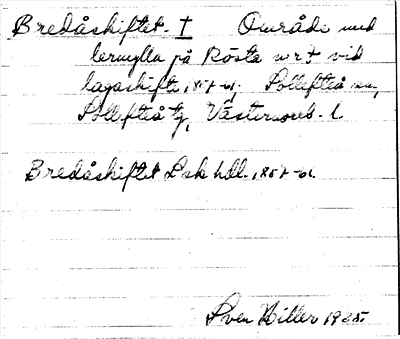 Bredåskiftet. I Område med
lermylla på Rösta urt vid
lagaskifte 1857-61. Sollefteå sn,
Sollefteå tg, Västernorrl. l
Bredåskiftet Lsk hdl. 1857-61
Sven Hiller 1935.